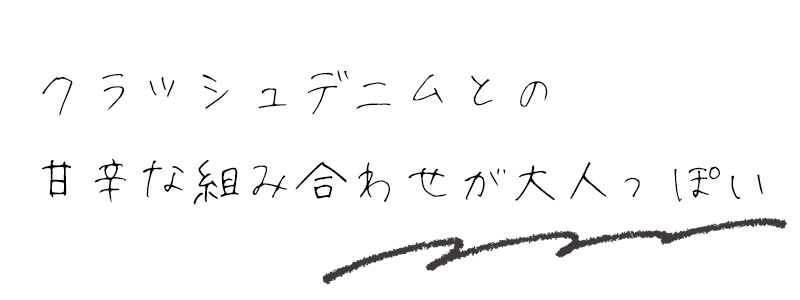 クラッシュデニムとの
甘辛な組み合わせが大人っぽい